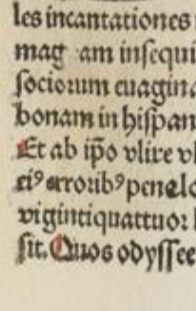 les incantationes
mag am insequi
sociorum euagina
bonam in hispan
Et ab ip̄o vlixe vl
ei⁹ erroribꝰ penelo
vigintiquattuor l
sit. Quos odyssee